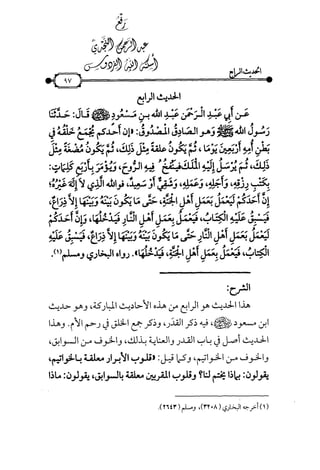 رفع
عبد الرحمن النجدي
أسكنه الله الفردوس
الحديث الرابع
٩٧
الحديث الرابع
عَنْ أَبِي عَبْدِ الرَّحْمَنِ عَبْدِ اللهِ بنِ مَسْعُودٍ رضي الله عنه قَالَ: حَدَّثَنَا
رَسُولُ اللهِ ﷺ وَهو الصَّادِقُ المَصْدُوقُ: «إِن أَحدَكُم يُجْمَعُ خَلْقُهُ فِي
بَطْنِ أُمِهِ أَرْبَعِينَ يَومًا، ثُمَّ يَكُونُ عَلَقَةً مِثْلَ ذَلِكَ، ثُمَّ يَكُونُ مُضْغَةً مِثْلَ
ذَلِكَ، ثُمَّ يُرْسَلُ إِلَيْهِ المَلَكُ فَيَنْفُخُ فِيهِ الرُّوحَ، وَيُؤْمَرُ بِأَرْبَعِ كَلِمَاتٍ:
بِكَتْبِ رِزْقِهِ، وَأَجَلِهِ، وَعَمَلِهِ، وَشَقِيٌّ أَوْ سَعِيدٌ، فَوالله الَّذِي لاَ إِلَهَ غَيْرُهُ؛
إِنَّ أَحَدَكُمْ لَيَعْمَلُ بَعَمَلِ أَهْلِ الجَنَّةِ، حَتَّى مَا يَكُونَ بَيْنَهُ وَبَيْنَهَا إِلاَّ ذِرَاعٌ،
فَيَسْبِقُ عَلَيْهِ الْكِتَابُ، فَيَعْمَلُ بِعَمَلِ أَهْلِ النَّارِ فَيَدْخُلُهَا، وَإِنَّ أَحَدَكُمْ
لَيَعْمَلُ بِعَمَلِ أَهْلِ النَّارِ حَتَّى مَا يَكُونَ بَيْنَهُ وَبَيْنَهَا إِلاَّ ذِرَاعٌ، فَيَسْبِقُ عَلَيْهِ
الْكِتَابُ، فَيَعْمَلُ بِعَمَلِ أَهْلِ الْجَنَّةِ، فَيَدْخُلُهَا». رواه البخاري ومسلم(١).
الشرح:
هذا الحديث هو الرابع من هذه الأحاديث المباركة، وهو حديث
ابن مسعود رضي الله عنه، فيه ذكر القَدَر، وذكر جمع الخلق في رحم الأم. وهذا
الحديث أصل في باب القدر والعناية بذلك، والخوف من السوابق،
والخوف من الخواتيم، وكما قيل: «قلوب الأبرار معلقة بالخواتيم،
يقولون: بماذا يُختم لنا؟ وقلوب المقربين معلقة بالسوابق، يقولون: ماذا
(١) أخرجه البخاري (٣٢٠٨)، ومسلم (٢٦٤٣).